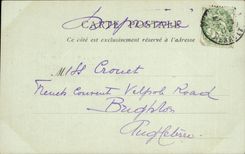 CARTE POSTALE
Ce côté est exclusivement réservé à l'adresse
Miss Crouet
French Convent Walpole Road
Brighton
Angleterre